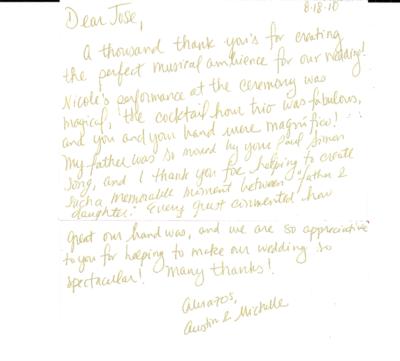 8-18-10
Dear Jose,
A thousand thank you's for creating
the perfect musical ambience for our wedding!
Nicole's performance at the ceremony was
magical, the cocktail hour trio was fabulous,
and you and your band were magnifico!
My father was so moved by your Paul Simon
song, and I thank you for helping to create
such a memorable moment between father &
daughter. Every guest commented how
great our band was, and we are so appreciative
to you for helping to make our wedding so
spectacular! Many thanks!
Abrazos,
Austin & Michelle